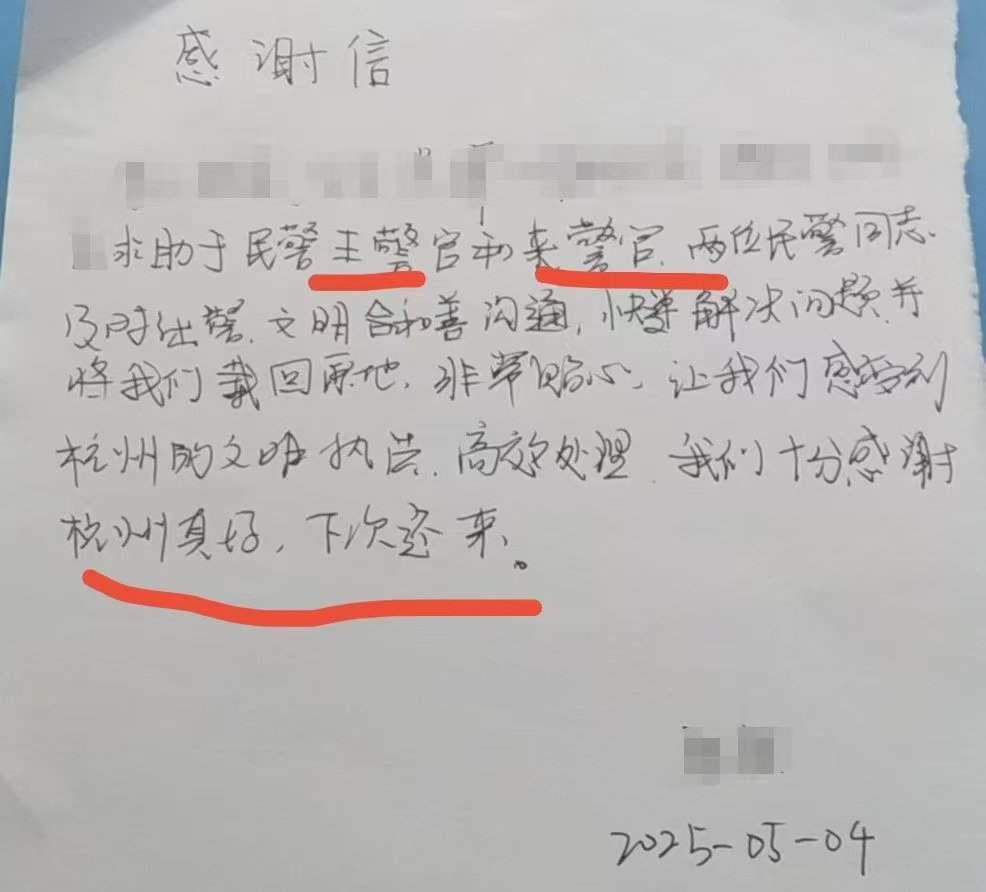 感谢信
求助于民警王警官和来警官,两位民警同志.
及时出警.文明合和善沟通,快等解决问题,并
将我们载回原地,非常贴心,让我们感受到
杭州的文明执法.高效处理.我们十分感谢
杭州真好,下次还来。
2025-05-04